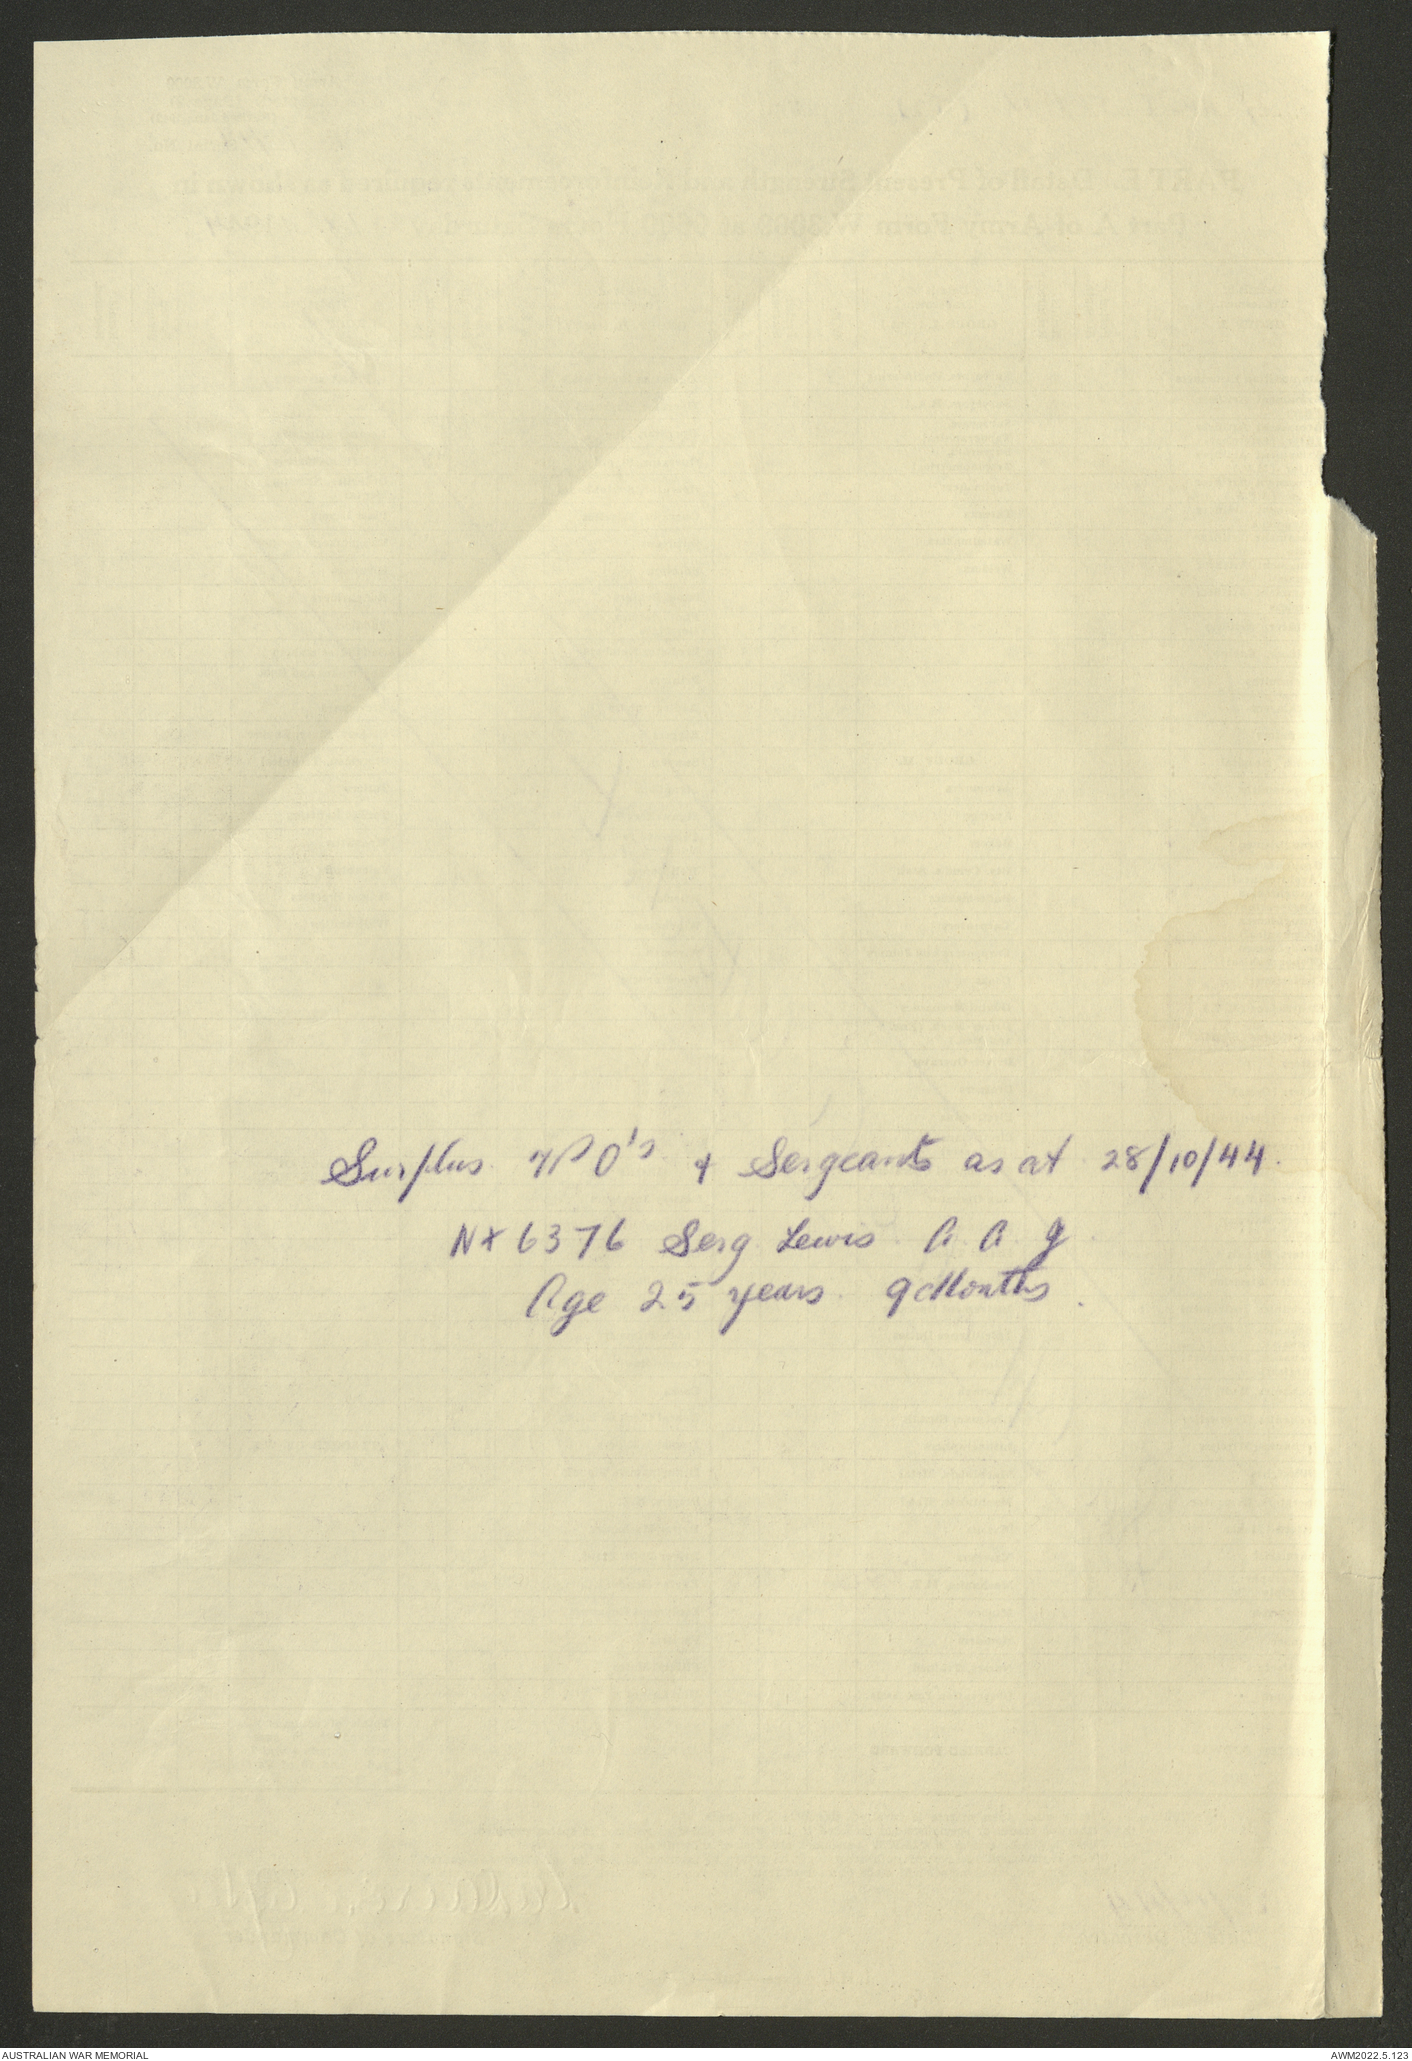 Surplus WO's + Sergeants as at 28/10/44.
NX 6376 Serg Lewis A A G
Age 25 years. 9 Months.
AUSTRALIAN WAR MEMORIAL
AWM2022.5.123